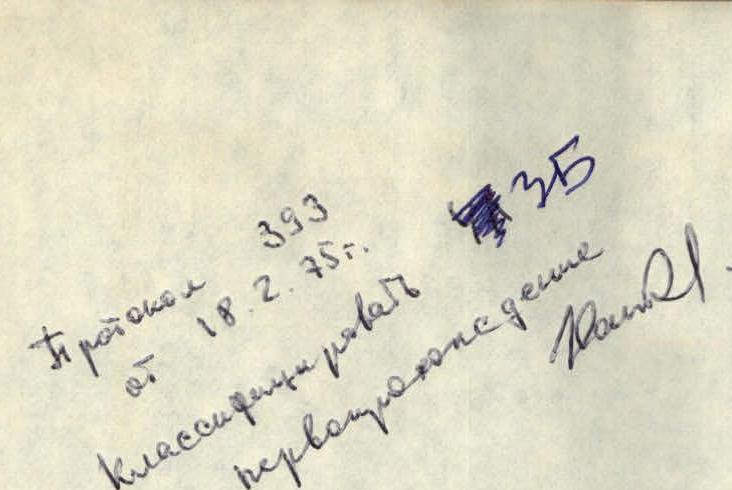 Протокол 393
от 18.2.75г.
Классифицировать 3Б
первопрохождение